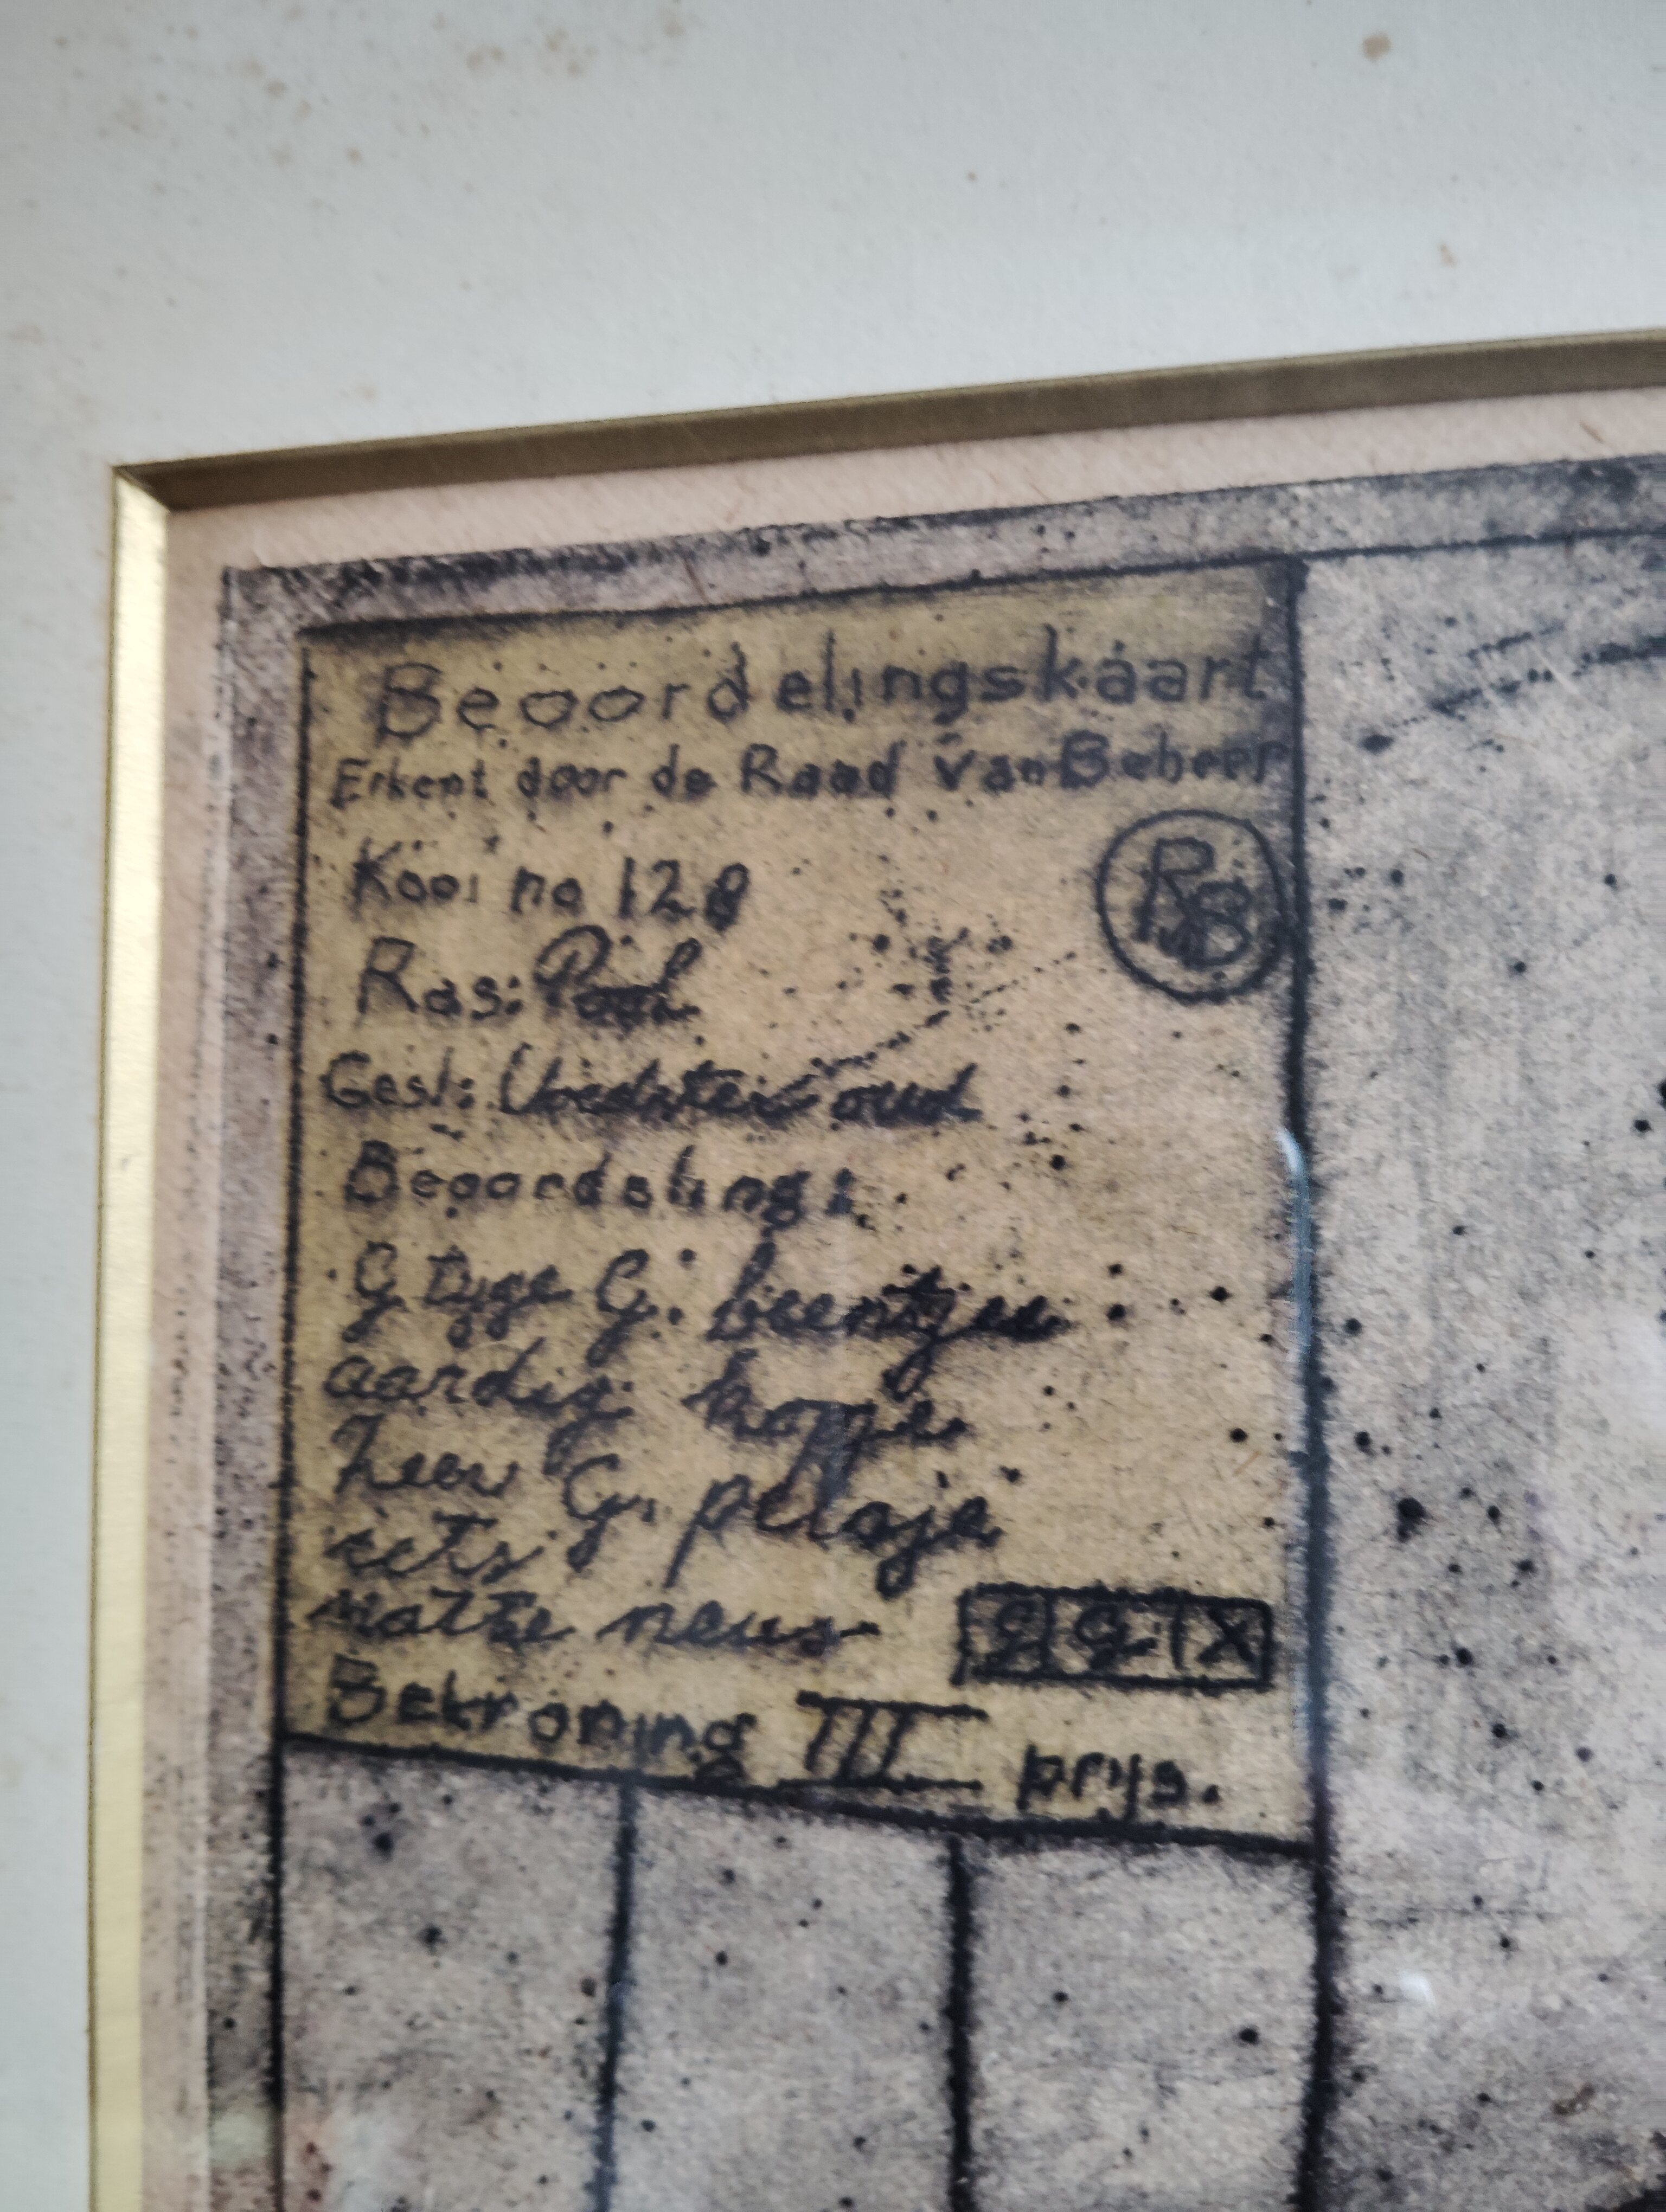 Beoordelingskaart
Erkent door de Raad van Beheer
Kooi no 128
RvB
Ras: Pool
Gesl: Voedster oud
Beoordeling:
G type G. beentjes
aardig kopje
Zeer G. pelsje
iets
natte neus
G G X
Bekroning III prys.